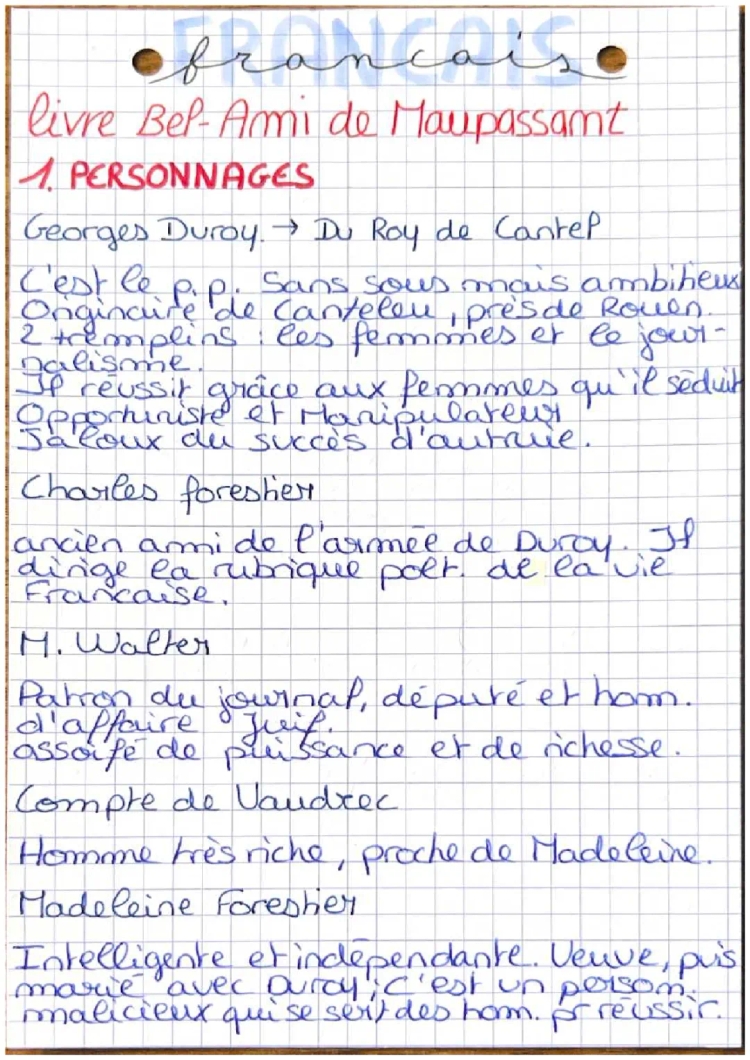 FRANCAIS
francais
livre Bel-Ami de Maupassamt
1. PERSONNAGES
Georges Duroy. → Du Roy de Cantel
C'est le p.p. Sans sous mais ambitieux
Originaire de Canteleu, près de Rouen.
2 tremplins : les femmes et le jour-
nalisme.
Il réussit grâce aux femmes qu'il séduit
Opportuniste et Manipulateur
Jaloux du succès d'autruie.
Charles forestier
ancien ami de l'armée de Duroy. Il
dirige la rubrique polt. de la vie
Francaise.
M. Walter
Patron du journal, député et hom.
d'affaire Juif.
assoifé de puissance et de richesse.
Compte de Vaudrec
Homme très riche, proche de Madeleine.
Madeleine Forestier
Intelligente et indépendante. Veuve, puis
marié avec Duroy ; c'est un persom.
malicieux qui se sert des hom. pr réussir.